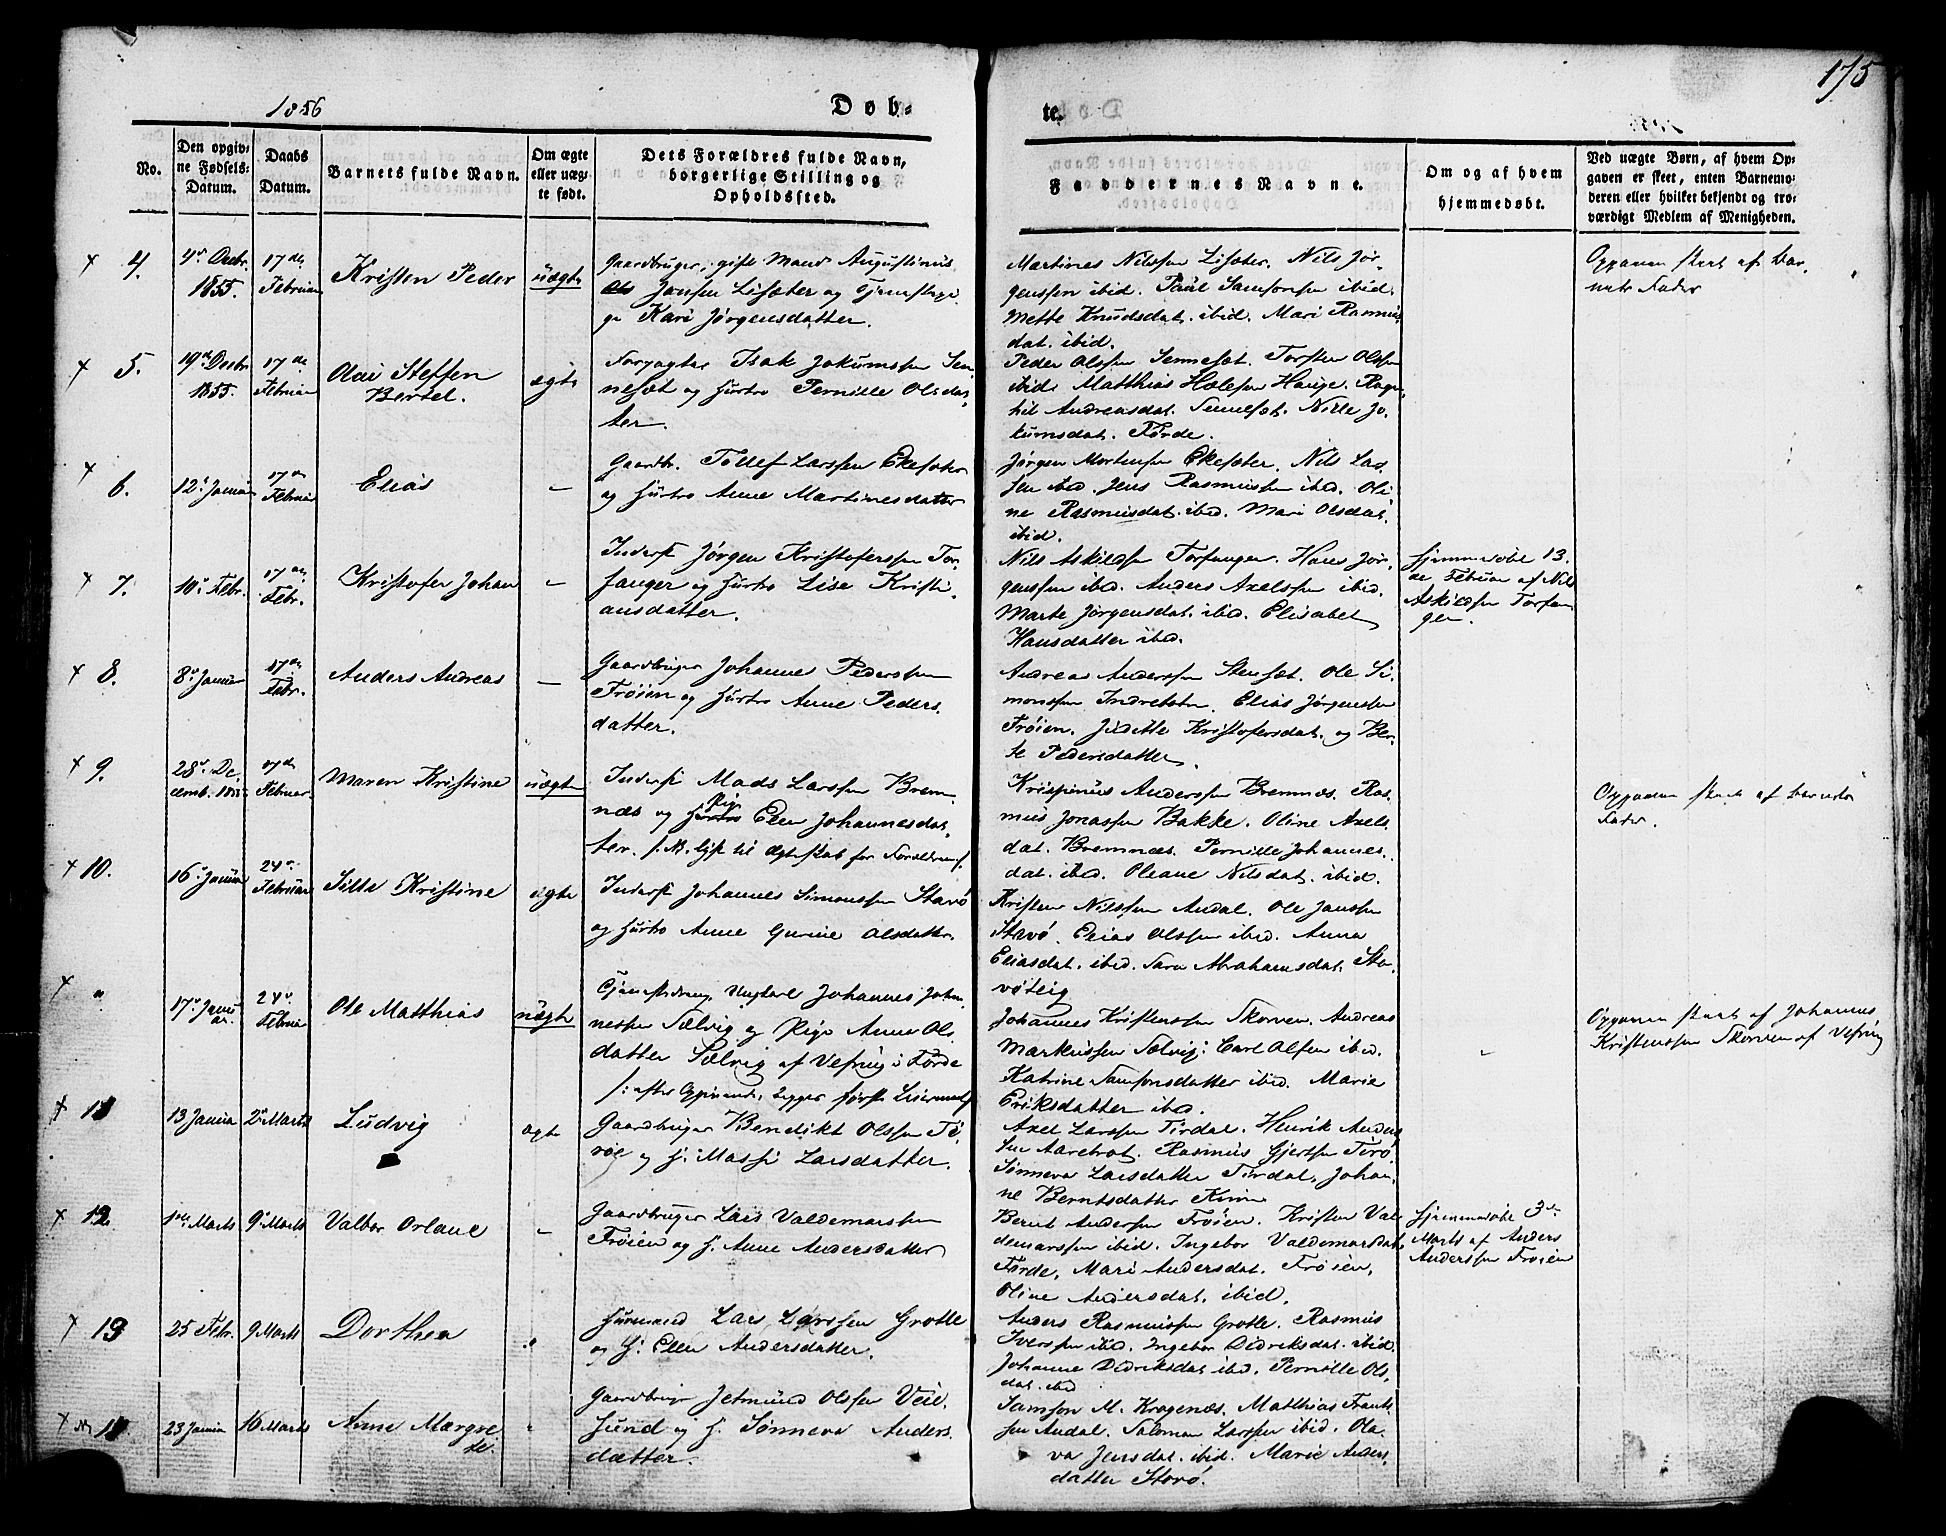 175
1856
Døb-
te.
No.
Den opgiv-
ne Fødsels-
Datum.
Daabs
Datum.
Barnets fulde Navn.
Om ægte
eller uæg-
te født.
Dets Forældres fulde Navn,
borgerlige Stilling og
Opholdssted.
Faddernes Navne.
Om og af hvem
hjemmedøbt.
Ved uægte Børn, af hvem Op-
gaven er skeet, enten Barnemo-
deren eller hvilket bekjendt og tro-
værdigt Medlem af Menigheden.
4.
4de Decbr.
1855.
17de
Februar
Kristen Peder
uægte
Gaardbruger, gift Mand Augustinus
Jansen Lisæter og Tjenestepi-
ge Kari Jørgensdatter.
Martines Nilssen Lisæter. Nils Jør-
genssen ibid. Paul Samsonsen ibid.
Mette Knudsdat. ibid. Mari Rasmus
dat. ibid.
Opgaven skeet af Bar-
nets Fader
5.
19de Decbr.
1855.
17de
Februar
Olai Steffen
Bertel.
ægte
Forpagter Isak Jokumssen Sen-
nesæt og Hustro Pernille Olsdat-
ter.
Peder Olssen Sennesæt. Torsten Olssen
ibid. Matthias Hælesen Hauge. Ragn-
hil Andreasdat. Sennesæt. Nille Jo-
kumsdat. Førde.
6.
12te Januar
17de
Februar
Elias
–
Gaardbr. Tollef Larssen Ekesæter
og Hustro Anne Martinesdatter
Jørgen Mortensen Ekesæter. Nils Las-
sen ibid. Jens Rasmussen ibid. Oli-
ne Rasmusdat. ibid. Mari Olsdat.
ibid.
7.
10de Febr.
17de
Febr.
Kristofer Johan
–
Inderst Jørgen Kristoferssen Tor-
fanger og Hustro Lise Kristi-
ansdatter.
Nils Askildsen Torfanger. Hans Jør-
genssen ibid. Anders Axelssen ibid.
Marte Jørgensdat. ibid. Elisabet
Hansdatter ibid.
Hjemmedøbt 13-
de Februar af Nils
Askildsen Torfan-
ger.
8.
8de Januar
17de
Febr.
Anders Andreas
–
Gaardbruger Johannes Pederssen
Frøien og Hustro Anne Peders-
datter.
Andreas Anderssen Stensæt. Ole Si-
monssen Indrebotn. Elias Jørgenssen
Frøien. Juditte Kristofersdat. og Ber-
te Pedersdatter.
9.
28de De-
cemb. 1855
17de
Februar
Maren Kristine
uægte
Inderst Mads Larssen Brem-
næs og Hustro Pige Elen Johannesdat-
ter. /: NB. lyst til Ægteskab for Forældrene :/
Krispinus Anderssen Bremnæs. Ras-
mus Jonassen Bakke. Oline Axels-
dat. Bremnæs. Pernille Johannes-
dat. ibid. Oleane Nilsdat. ibid.
Opgaven skeet af Barnets
Fader.
10.
16de Januar
24de
Februar
Silla Kristine
ægte
Inderst Johannes Simonssen Stavø
og Hustro Anne Gurine Olsdatter.
Kristen Nilssen Andal. Ole Janssen
Stavø. Elias Olssen ibid. Anna
Eliasdat. ibid. Sara Abrahamsdat. Sta-
vøteig
"
17de Janu-
ar.
24de
Februar
Ole Matthias
uægte
Tjenestedreng, Ungkarl Johannes Johan-
nessen Sælvig og Pige Anne Ols-
datter Sælvig af Vefring i Førde
Johannes Kristenssen Skorven. Andreas
Markussen Sælvig. Carl Olsen ibid.
Katrine Samsonsdatter ibid. Marie
Eriksdatter ibid.
Opgaven skeet af Johannes
Kristenssen Skorven af Vefring
11
13 Januar
2den Marts
Ludvig
ægte
Gaardbruger Benedikt Olssen Ti-
røe og H. Massi Larsdatter.
Axel Larssen Tirdal. Henrik Anders-
sen Aarebrot. Rasmus Gjertsen Tirø.
Sønneva Larsdatter Tirdal, Johan-
ne Berntsdatter Kinn
12
1ste Marts
9de Marts
Valbor Orlane
–
Gaardbruger Lars Valdemarssen
Frøien og H. Anne Andersdatter
Bernt Anderssen Frøien. Kristen Val-
demarssen ibid. Ingebor Valdemarsdat.
Førde, Mari Andersdat. Frøien,
Oline Andersdat. ibid.
Hjemmedøbt 3de
Marts af Anders
Anderssen Frøien
13
25 Febr.
9 Marts
Dorthea
Huusmand Lars Larssen Grotle
og H. Elen Andersdatter.
Anders Rasmussen Grotle. Rasmus
Iverssen ibid. Ingebor Didriksdat. ibid.
Johanne Didriksdat. ibid. Pernille Ols-
dat. ibid
23 Januar
16 Marts
Anne Margre-
te.
Gaardbruger Jetmund Olssen Veie-
sund og H. Sønneva Anders-
datter.
Samson M. Kragenæs. Matthias Frants-
sen Andal. Salomon Larssen ibid. Ola-
va Jensdat. ibid. Marie Anders-
datter Stavø.